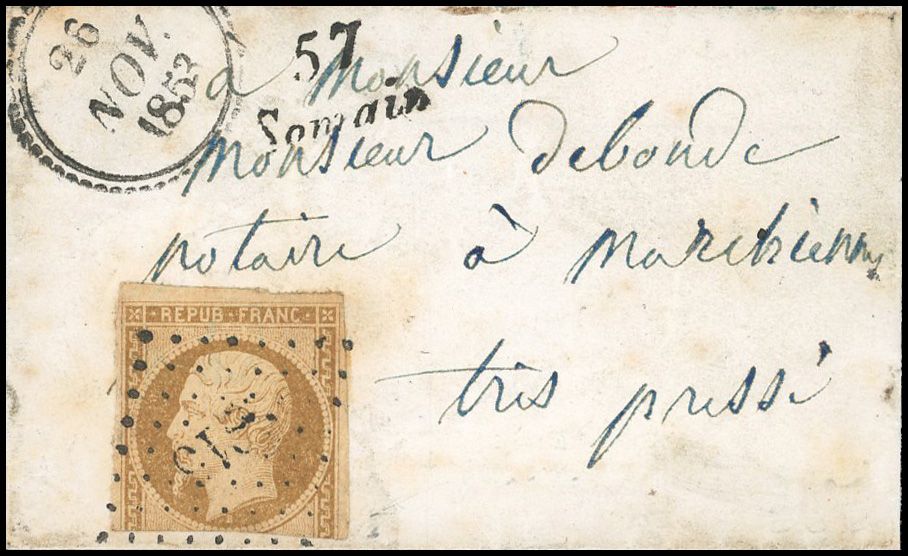 26
NOV.
1853
57
Somain
a Monsieur
Monsieur debonde
notaire à Marchiennes
tris pressé
REPUB FRANC